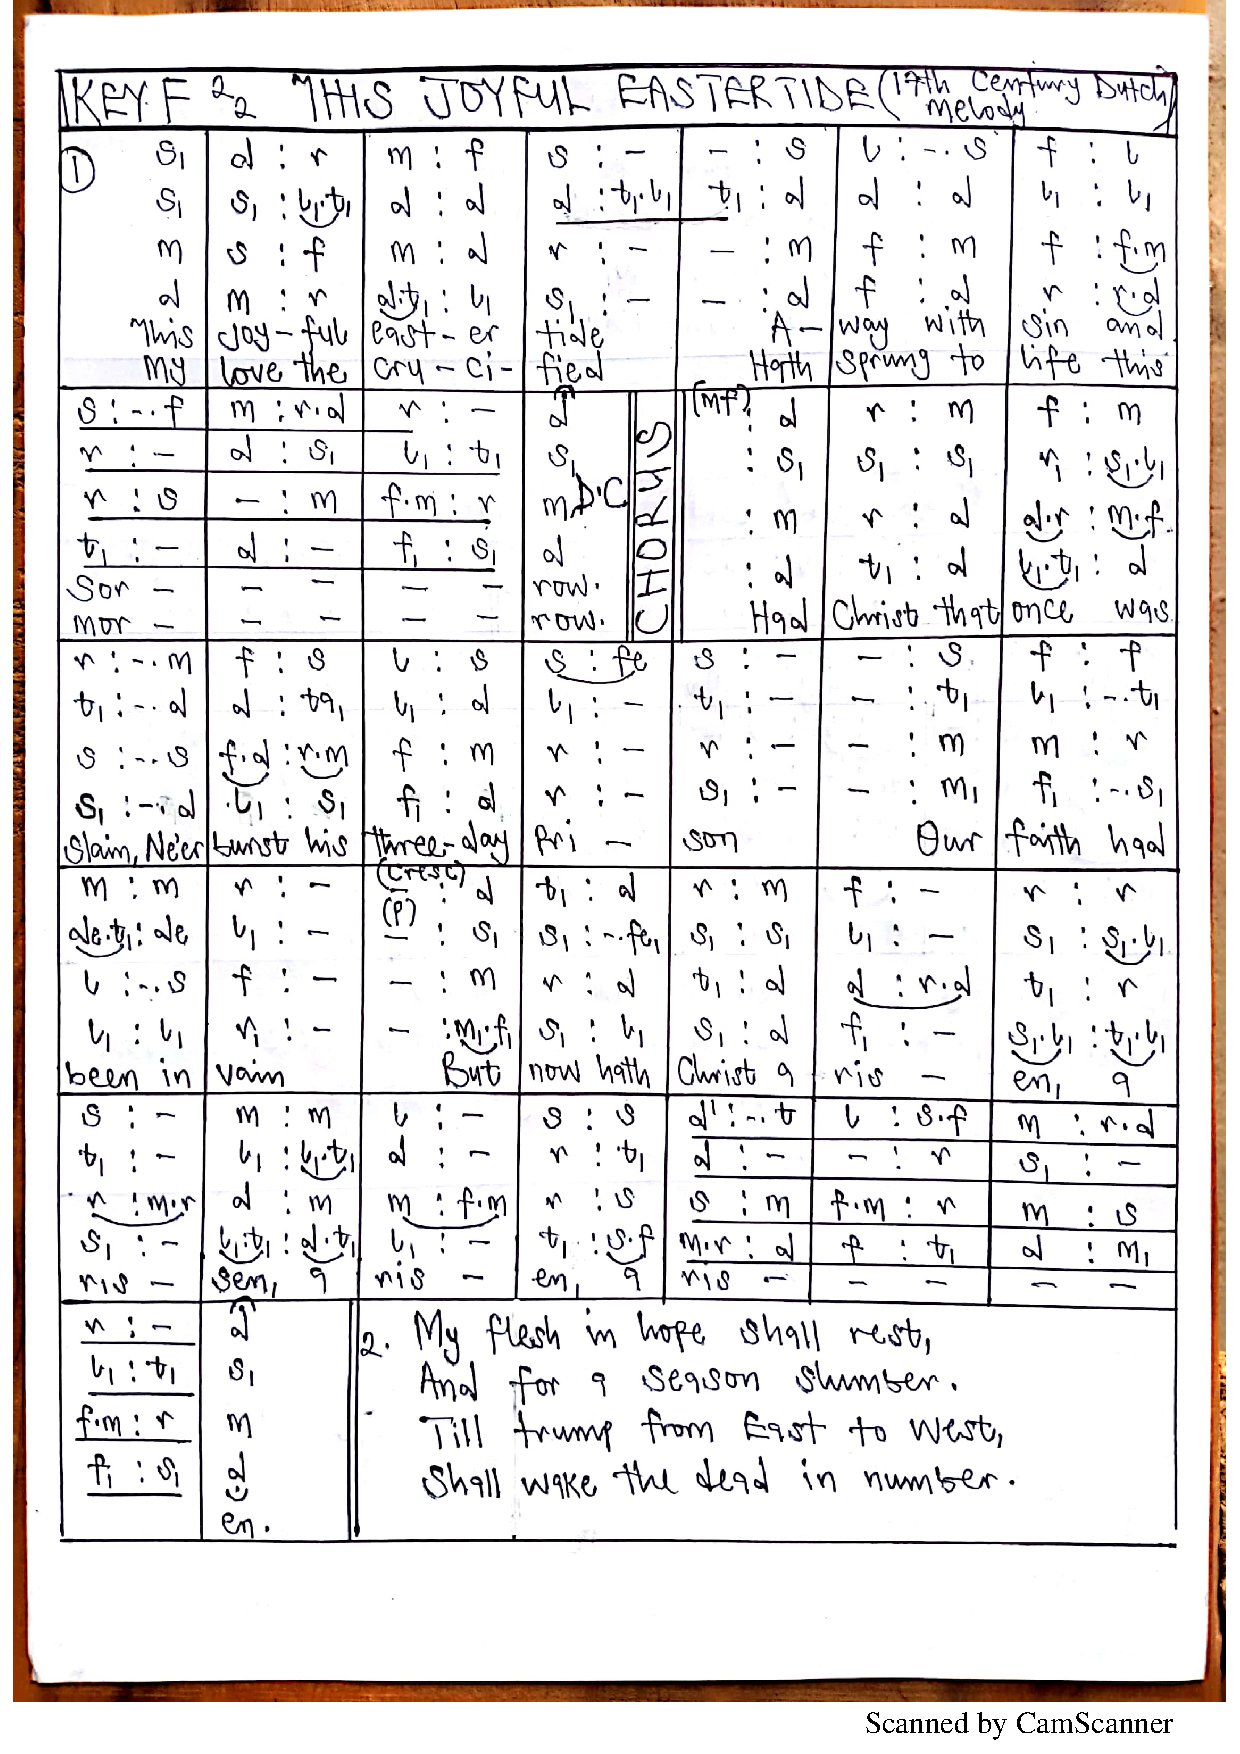 KEY.F 2/2 THIS JOYFUL EASTERTIDE (17th Century Dutch Melody
① s₁ | d : r | m : f | s : - | - : s | l : -. s | f : l
s₁ | s₁ : l₁.t₁ | d : d | d : t₁.l₁ | t₁ : d | d : d | l₁ : l₁
m | s : f | m : d | r : - | - : m | f : m | f : f.m
d | m : r | d.t₁ : l₁ | s₁ : - | - : d | f : d | r : r.d
This | Joy-ful | east-er | tide | A- | way with | sin and
My | love the | cry-ci- | fied | Hath | sprung to | life this
s : -. f | m : r.d | r : - | d | CHORUS | (mf) : d | r : m | f : m
r : - | d : s₁ | l₁ : t₁ | s₁ | : s₁ | s₁ : s₁ | r₁ : s₁.l₁
r : s | - : m | f.m : r | m D.C | : m | r : d | d.r : m.f
t₁ : - | d : - | f₁ : s₁ | d | : d | t₁ : d | l₁.t₁ : d
Sor - | - - | - - | row. | Had | Christ that | once was
mor - | - - | - - | row.
r : -. m | f : s | l : s | s : fe | s : - | - : s | f : f
t₁ : -. d | d : ta₁ | l₁ : d | l₁ : - | t₁ : - | - : t₁ | l₁ : -. t₁
s : -. s | f.d : r.m | f : m | r : - | r : - | - : m | m : r
s₁ : -. d | l₁ : s₁ | f₁ : d | r : - | s₁ : - | - : m₁ | f₁ : -. s₁
Slain, Ne'er | burst his | three-day | Pri - | son | Our | faith had
m : m | r : - | (Cresc) - : d | t₁ : d | r : m | f : - | r : r
de.t₁ : de | l₁ : - | (P) - : s₁ | s₁ : -. fe₁ | s₁ : s₁ | l₁ : - | s₁ : s₁.l₁
l : -. s | f : - | - : m | r : d | t₁ : d | d : r.d | t₁ : r
l₁ : l₁ | r₁ : - | - : m₁.f₁ | s₁ : l₁ | s₁ : d | f₁ : - | s₁.l₁ : t₁.l₁
been in | vain | But | now hath | Christ a | ris - | en, a
s : - | m : m | l : - | s : s | d' : -. t | l : s.f | m : r.d
t₁ : - | l₁ : l₁.t₁ | d : - | r : t₁ | d : - | - : r | s₁ : -
r : m.r | d : m | m : f.m | r : s | s : m | f.m : r | m : s
s₁ : - | l₁.t₁ : d.t₁ | l₁ : - | t₁ : s.f | m.r : d | f : t₁ | d : m₁
ris - | sen, a | ris - | en, a | ris - | - - | - -
r : - | d
l₁ : t₁ | s₁
f.m : r | m
f₁ : s₁ | d
en.
2. My flesh in hope shall rest,
And for a season slumber.
Till trump from East to West,
Shall wake the dead in number.
Scanned by CamScanner